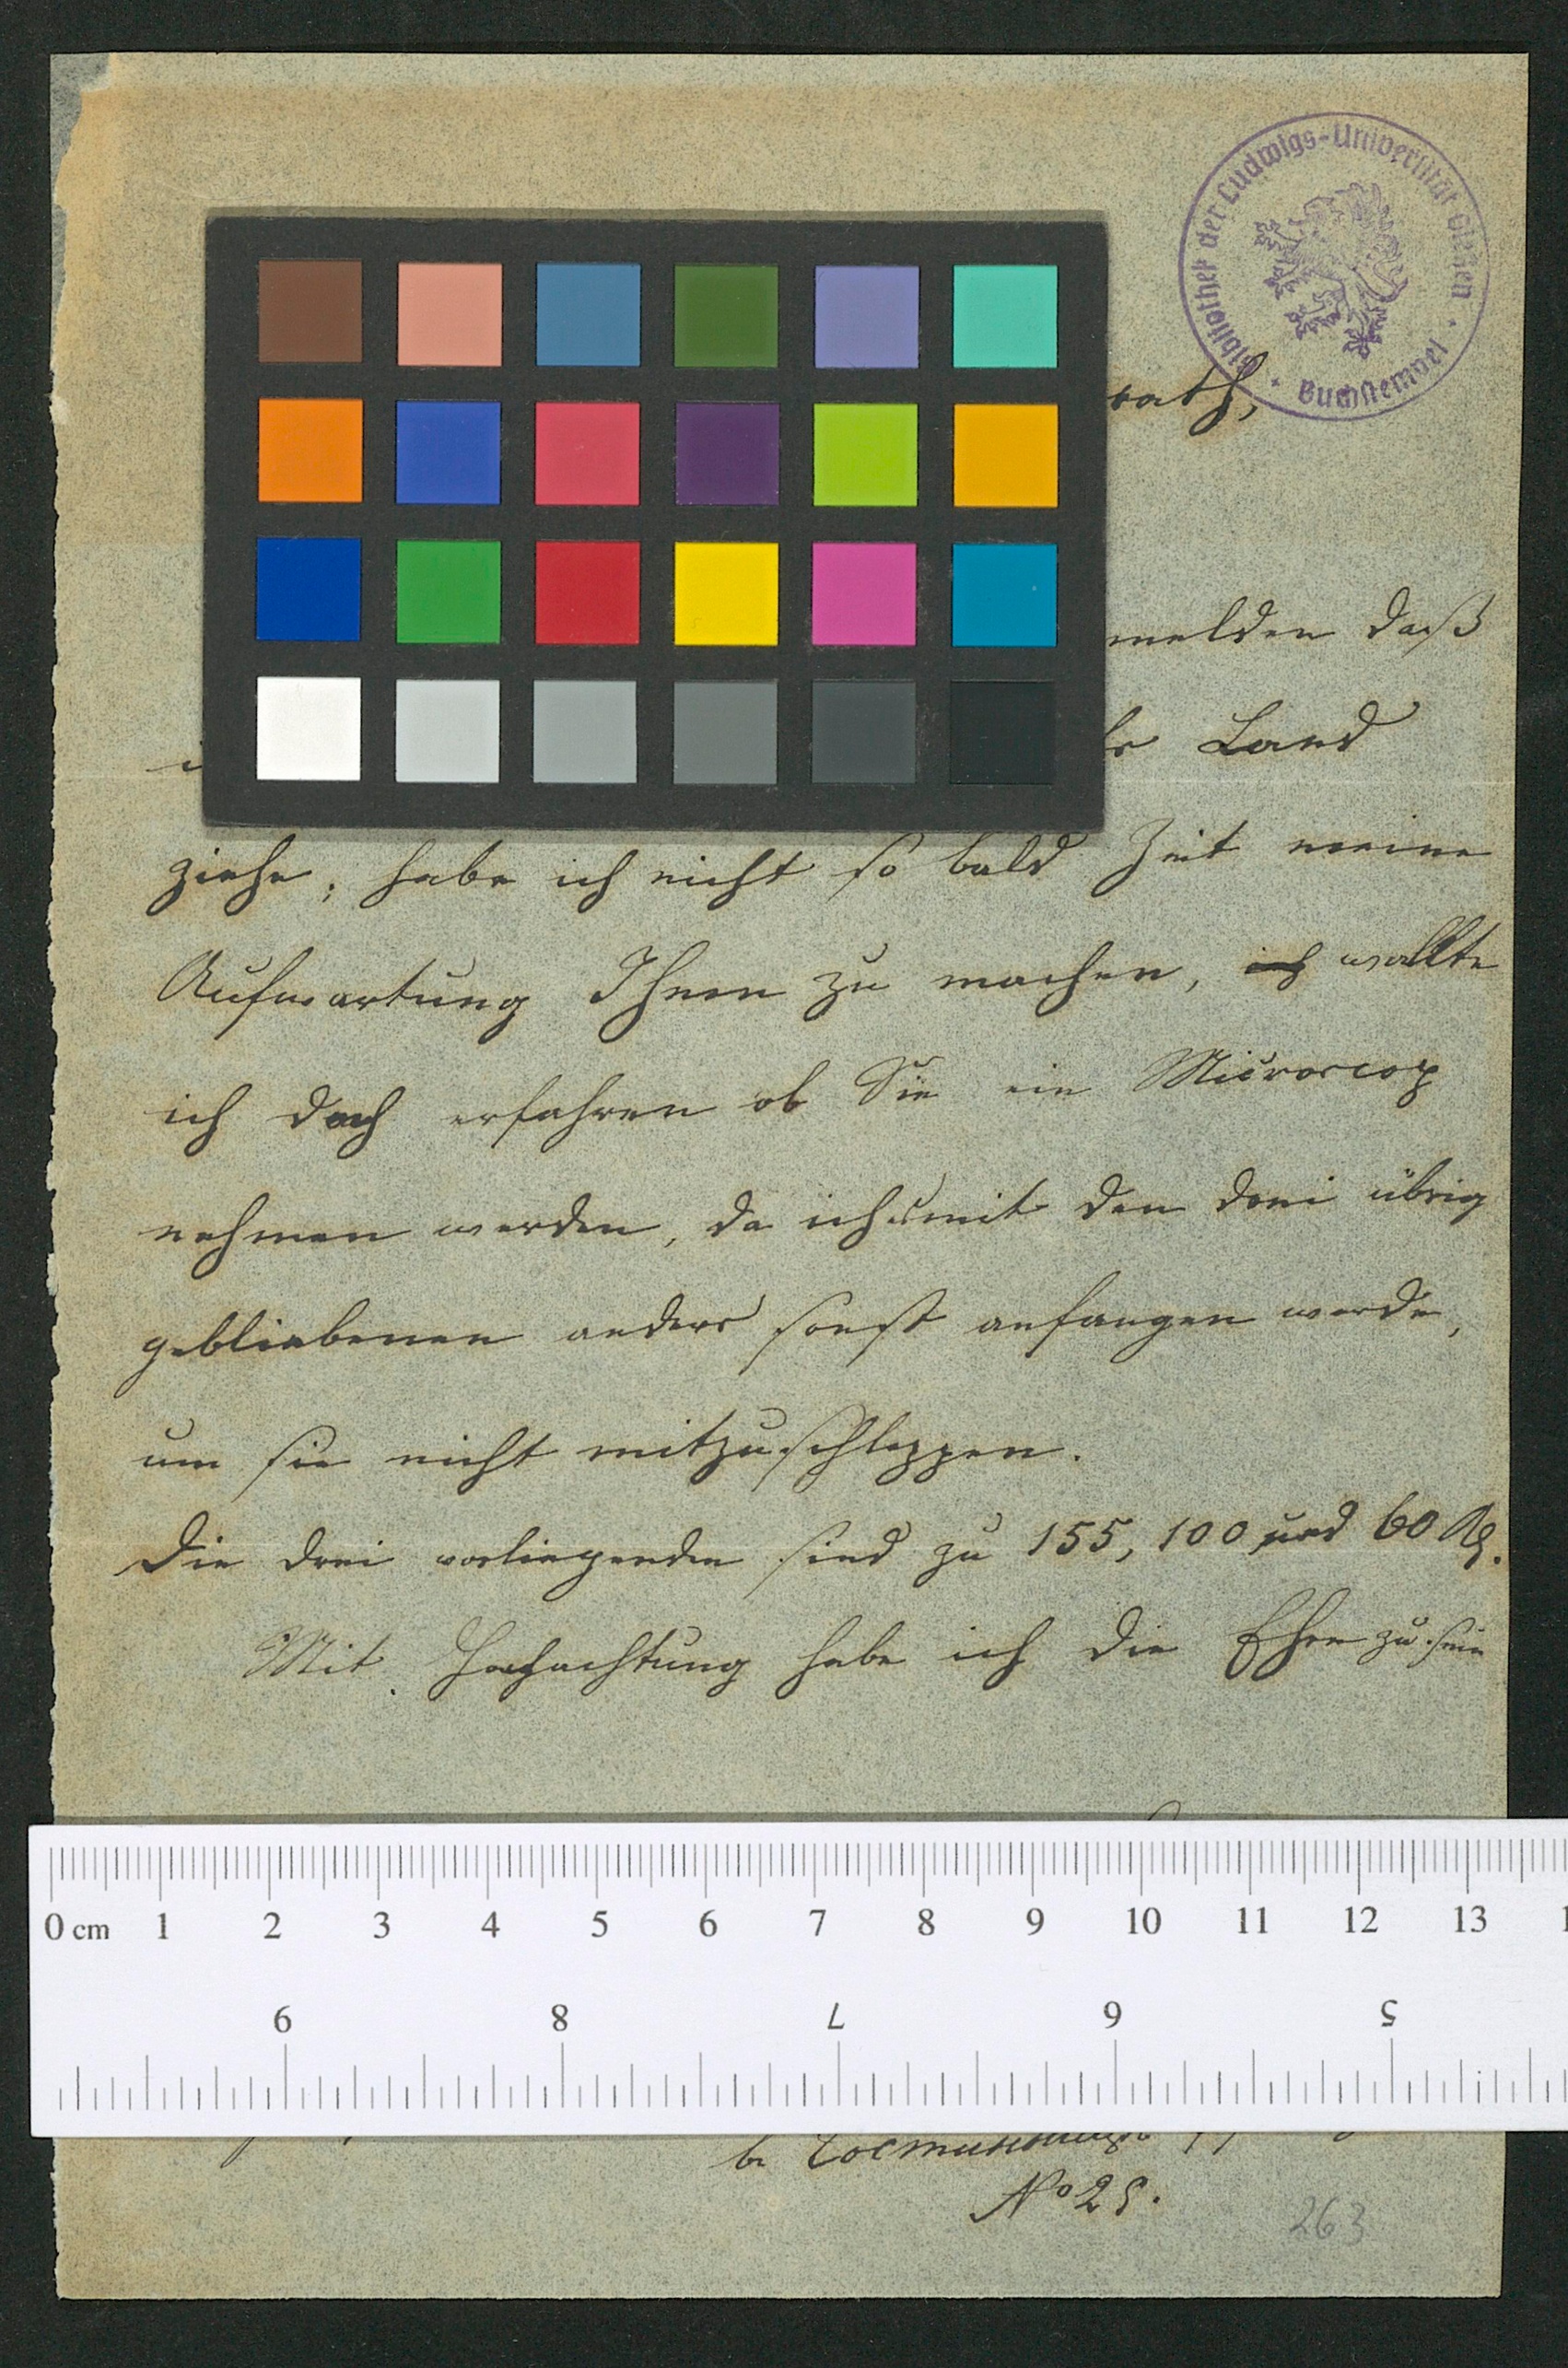 Bibliothek der Ludwigs-Universität Gießen · Buchstempel ·
rath,
melden daß
Land
ziehe; habe ich nicht so bald Zeit meine
Aufwartung Ihnen zu machen, ich wollte
ich doch erfahren ob Sie ein Microscop
nehmen werden, da ich mit den drei übrig
gebliebenen anders sonst anfangen werde,
um sie nicht mitzuschleppen.
Die drei vorliegenden sind zu 155, 100 und 60 R.
Mit Hochachtung habe ich die Ehre zu sein
0 cm 1 2 3 4 5 6 7 8 9 10 11 12 13
9 8 7 6 5
No 25.
263